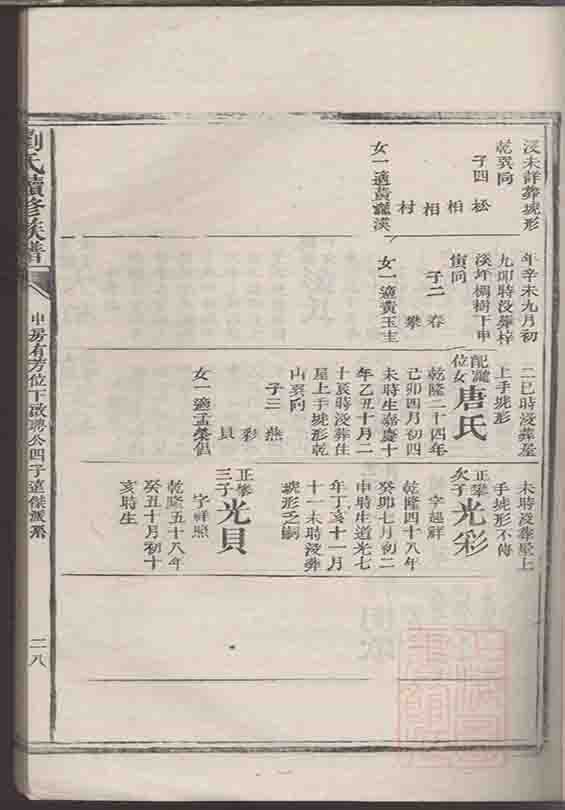 歿未詳葬琥形
乾巽向
子四 松
柏
相
村
女一適黃龍漢
年辛未九月初
九卯時沒葬梓
溪圷椆樹下申
寅向
子二 春
攀
女一適黃玉圭
二巳時沒葬屋
上手琥形
配龍位女 唐氏
乾隆二十四年
己卯四月初四
未時生嘉慶十
年乙丑十月二
十亥時沒葬住
屋上手琥形乾
山巽向
子三 燕
彩
貝
女一適孟榮侶
未時沒葬屋上
手琥形不傳
正攀次子 光彩
字起祥
乾隆四十八年
癸卯七月初二
申時生道光七
年丁亥十一月
十一未時沒葬
琥形乏嗣
正攀三子 光貝
字祥照
乾隆五十八年
癸丑十月初十
亥時生
劉氏續修族譜
申房有芳位下啟聘公四子遠傑派系
二八